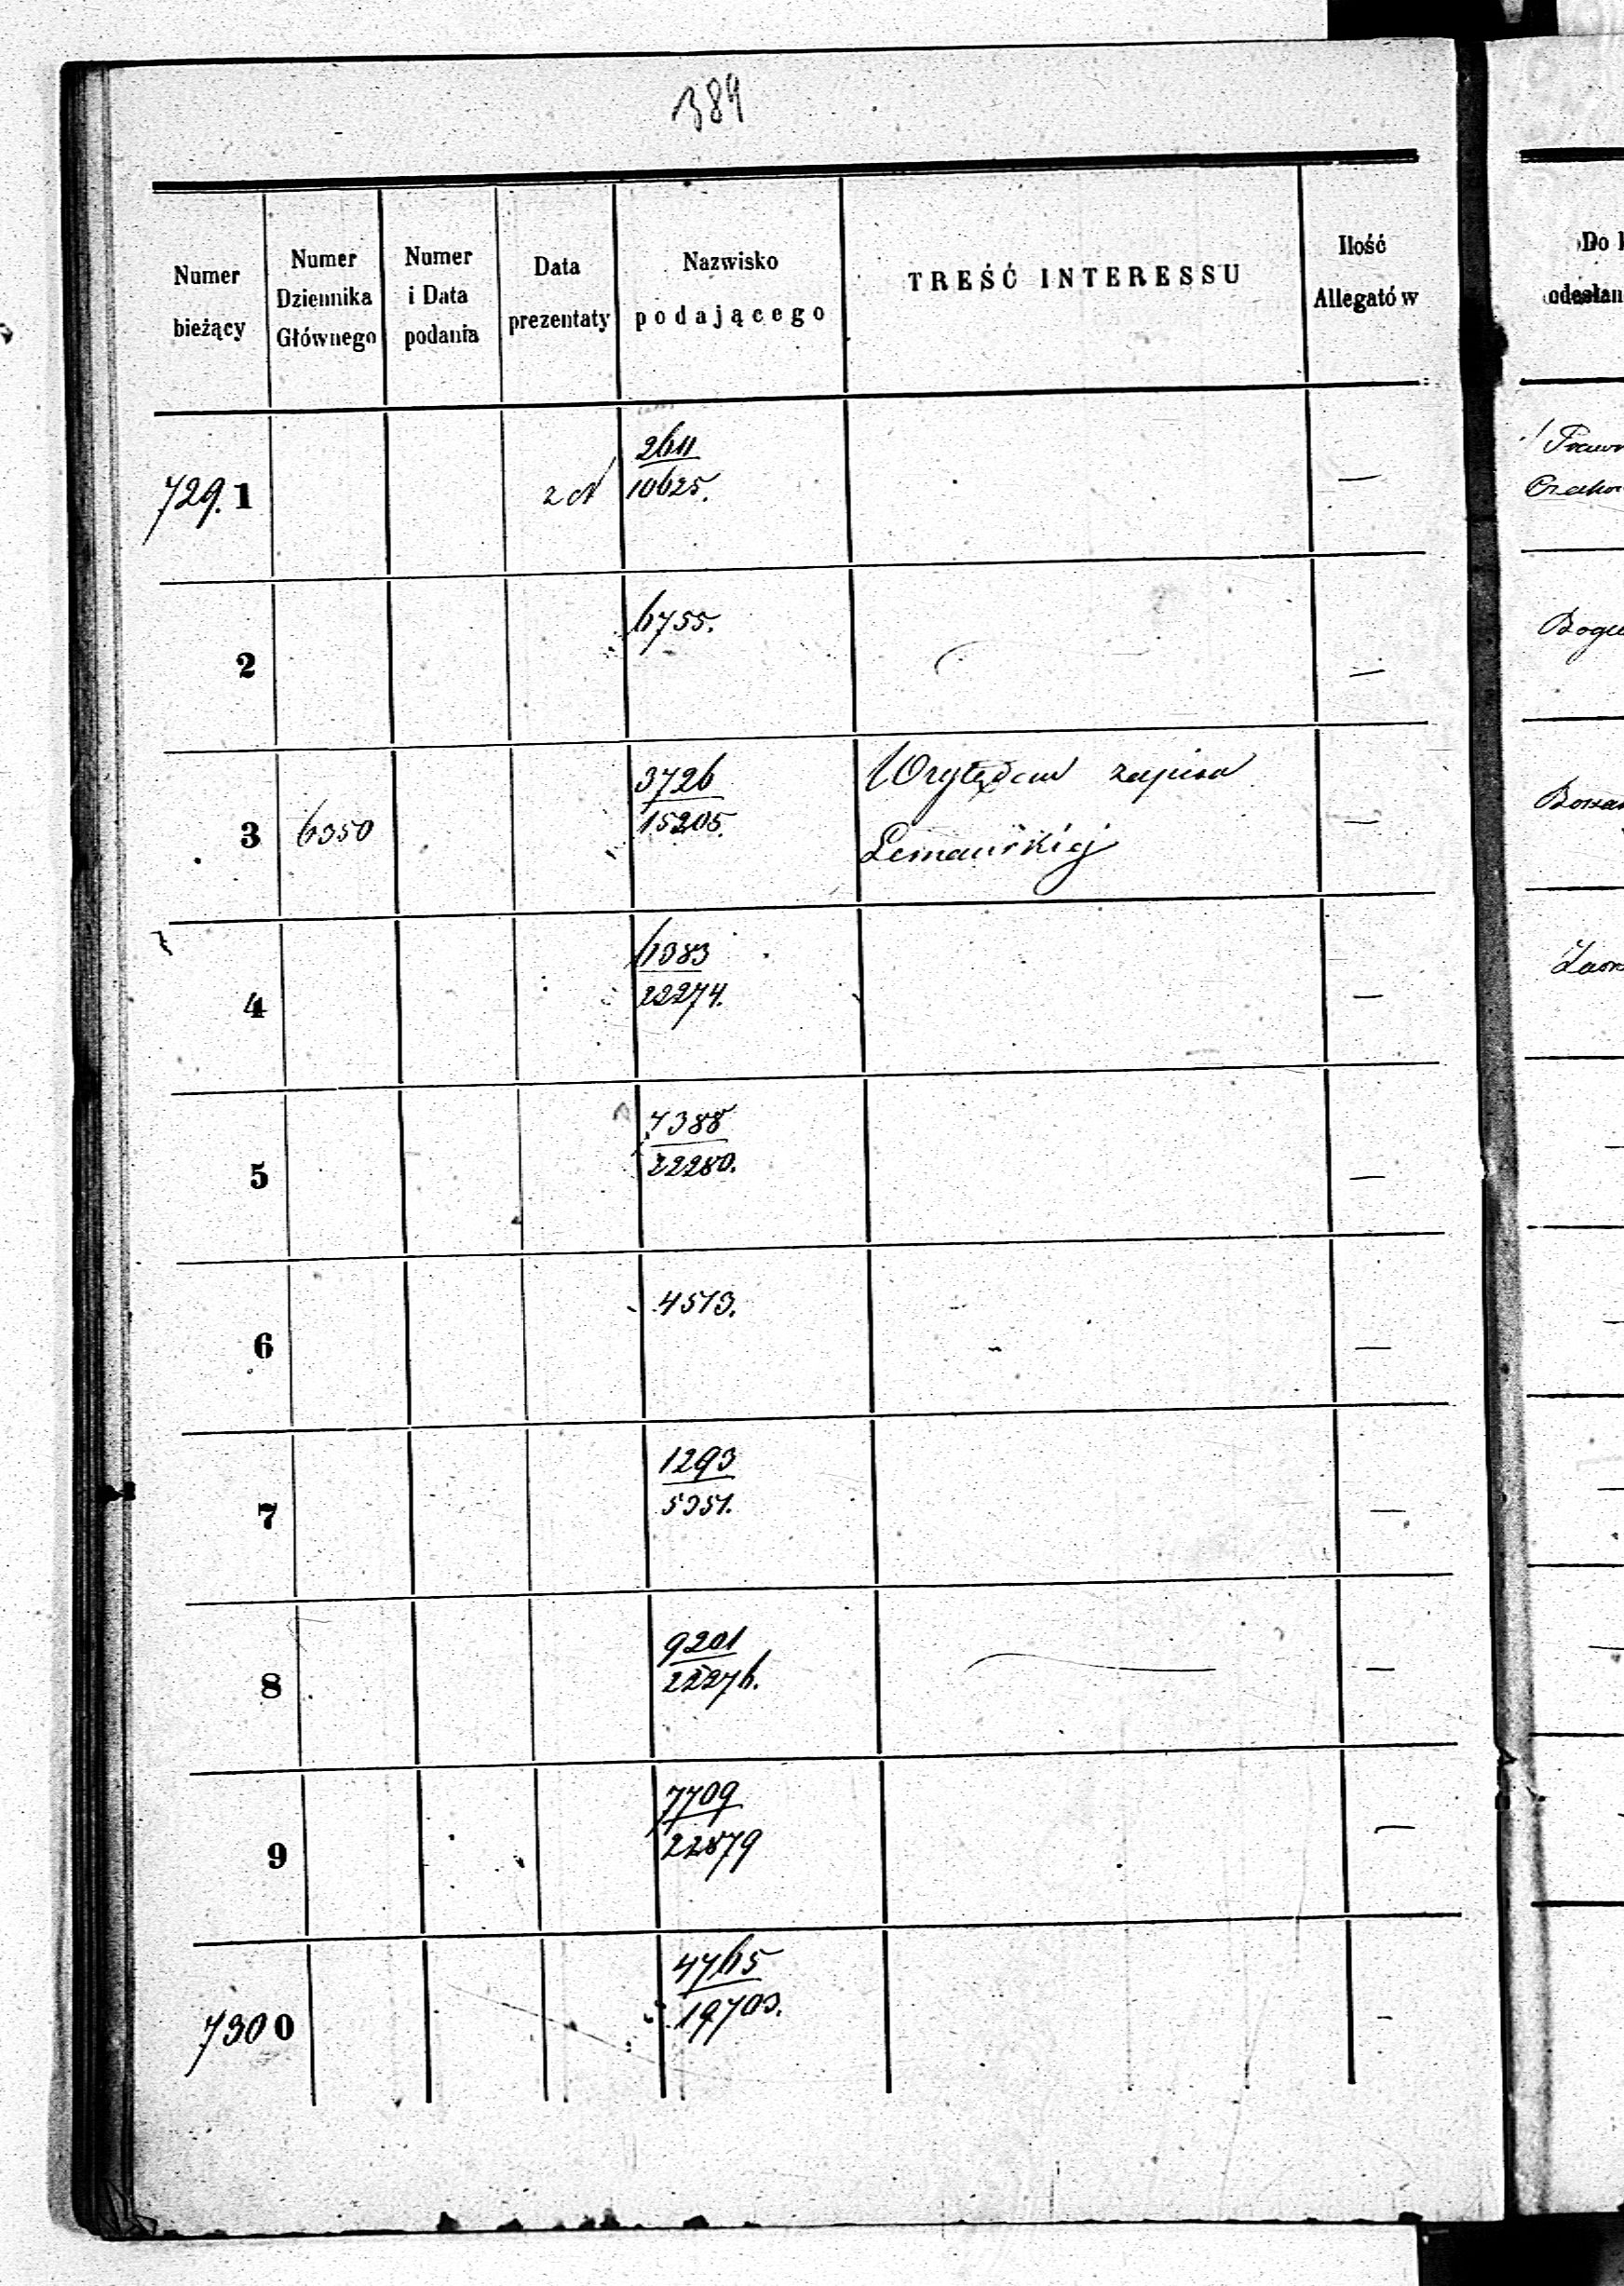 384
Numer bieżący
Numer Dziennika Głównego
Numer i Data podania
Data prezentaty
Nazwisko podającego
TREŚĆ INTERESSU
Ilość Allegatów
Do
odesłan
7291
2611
10625.
—
2
6755.
—
3
6350
3726
15205.
zapisu
—
4
6383
22274.
—
5
7388
22280.
—
6
4513.
—
7
1293
5351.
—
8
9201
22276.
—
9
7709
22879
—
7300
4765
19703.
—